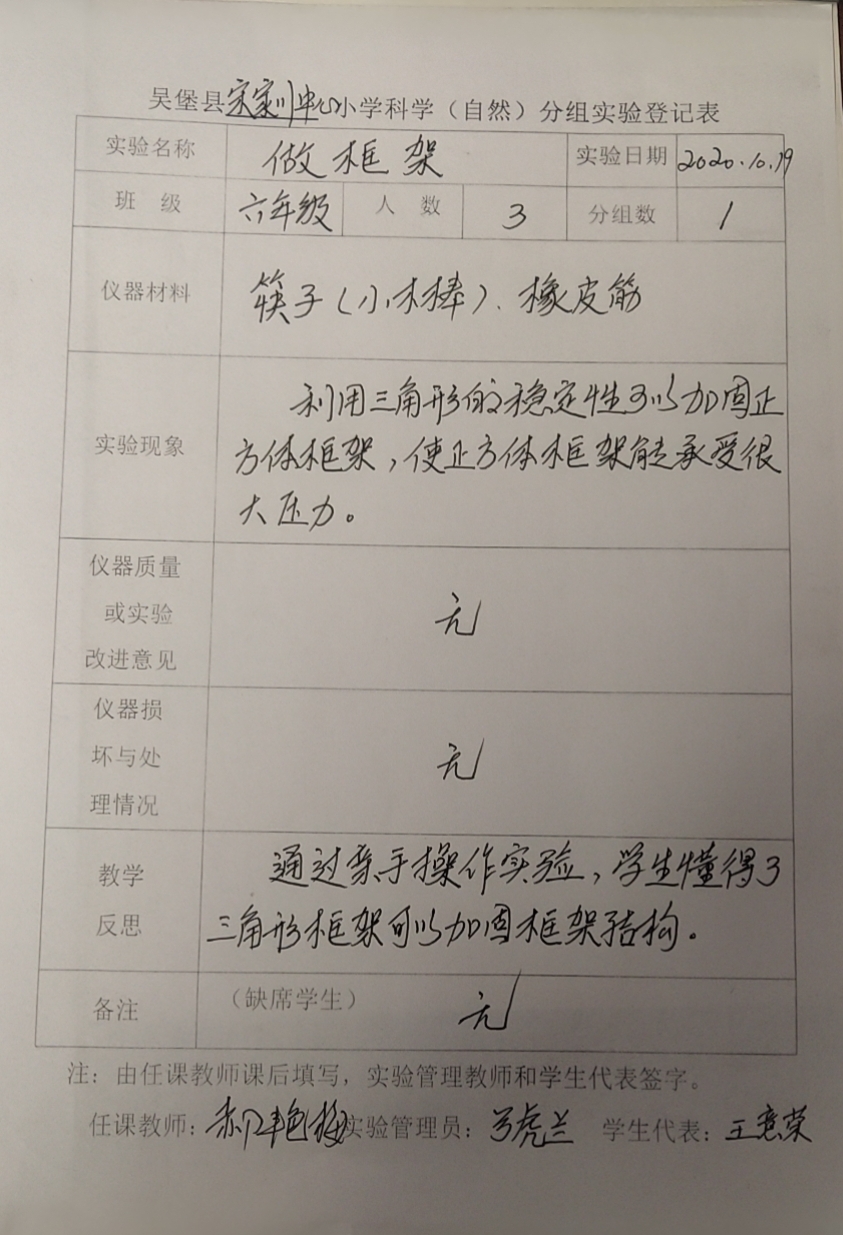 吴堡县宋家川中心小学科学（自然）分组实验登记表
实验名称 做框架 实验日期 2020.10.19
班 级 六年级 人 数 3 分组数 1
仪器材料 筷子（小木棒）、橡皮筋
利用三角形的稳定性可以加固正
实验现象 方体框架，使正方体框架能承受很
大压力。
仪器质量
或实验 无
改进意见
仪器损
坏与处 无
理情况
教学 通过亲手操作实验，学生懂得了
反思 三角形框架可以加固框架结构。
备注 （缺席学生） 无
注：由任课教师课后填写，实验管理教师和学生代表签字。
任课教师： 实验管理员：弓虎兰 学生代表：王意荣